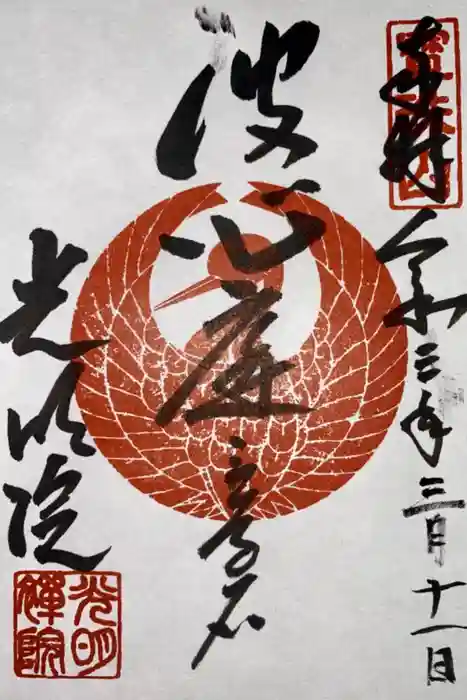 奉拝
令和三年三月十一日
波心庭
三尊石
光明院
光明
禪院